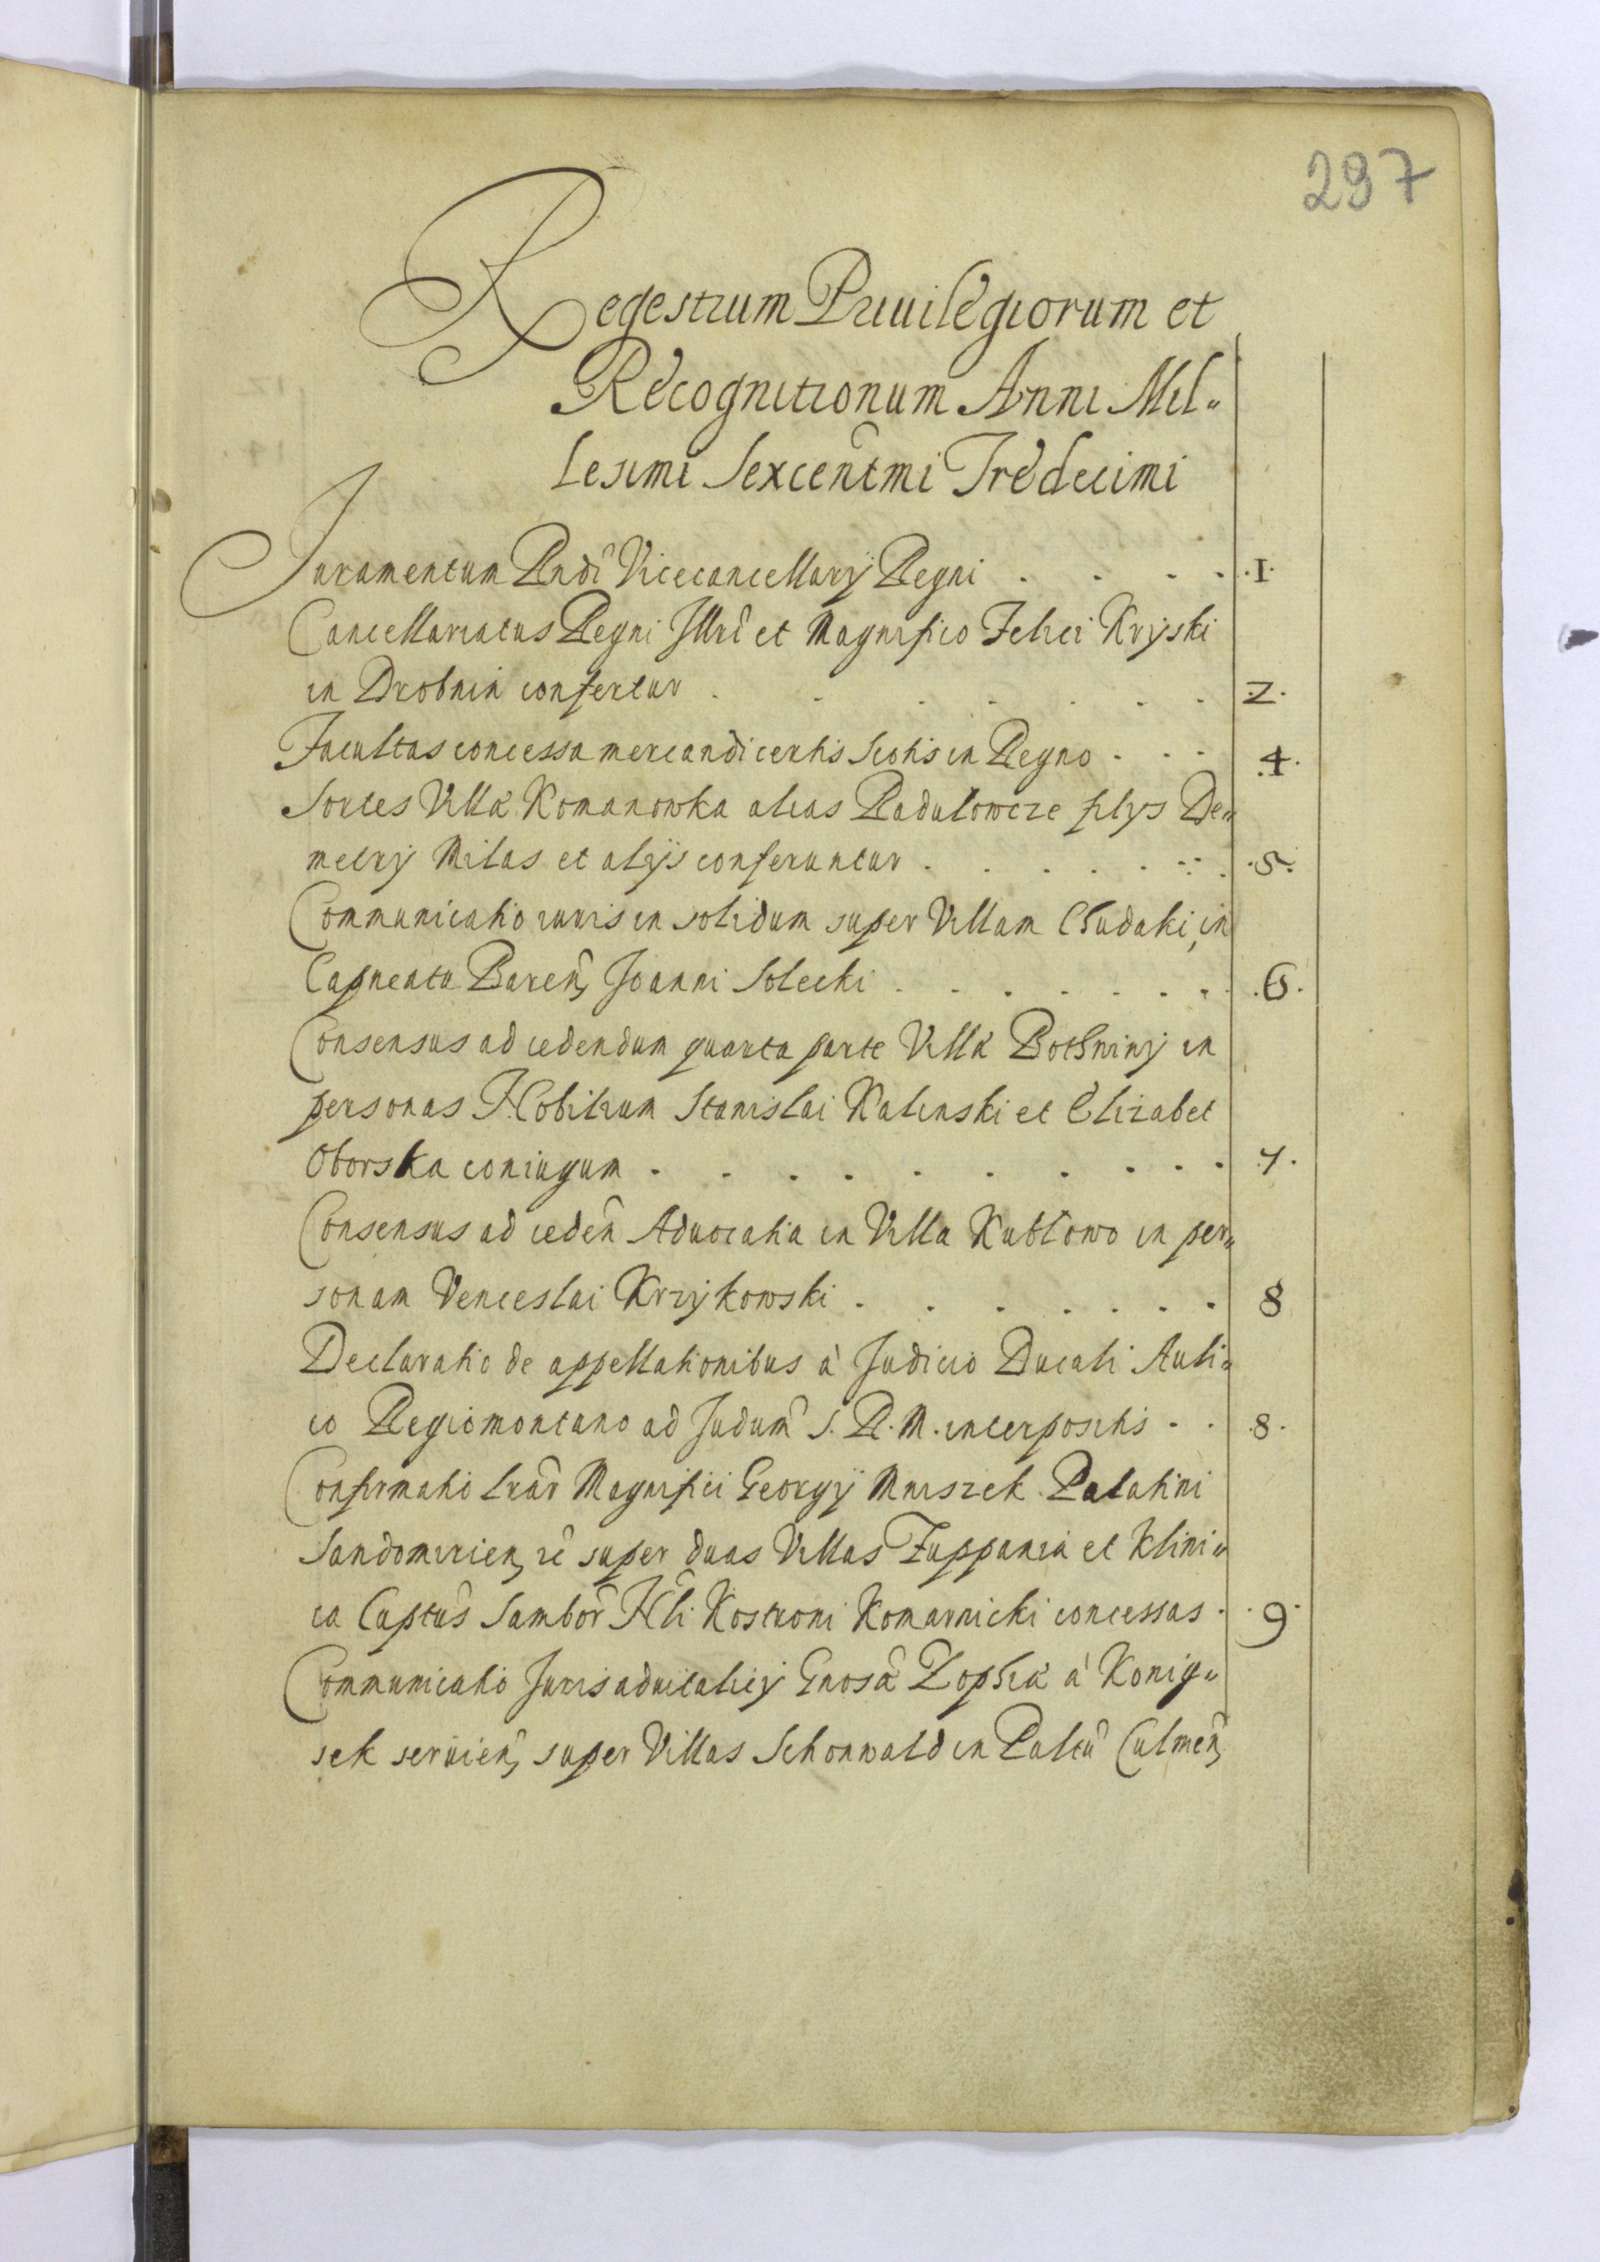 297
Regestrum Priuilegiorum et
Recognitionum Anni Mil„
lesimi Sexcentmi Tredecimi
Juramentum Rndi Vicecancellarÿ Regni . . . . .1.
Cancellariatus Regni Illri et Magnifico Felici Kryski
in Drobnin confertur . . . . . . . 2.
Facultas concessa mercandi certis Scotis in Regno . . . .4.
Sortes Villæ Romanowka alias Radulowcze filys De„
metrÿ Milas et alÿs conferuntur . . . . . . .5.
Communicatio iuris in solidum super Villam Chudaki, in
Capneatu Baren, Joanni Solecki . . . . . . . .6.
Consensus ad cedendum quarta parte Villæ Bothniny in
personas Nobilium Stanislai Kalinski et Elizabet
Oborska coniugum . . . . . . . . . 7.
Consensus ad ceden Aduocatia in Villa Kubłowo in per„
sonam Venceslai Krzykowski . . . . . . . 8
Declaratio de appellationibus à Judicio Ducali Auli„
co Regiomontano ad Judum S. R. M. interpositis . . .8.
Confirmatio lrar Magnifici Georgÿ Mniszek Palatini
Sandomirien, rc super duas Villas Zuppania et Klini„
ca Captus Sambor Nli Kostroni Komarnicki concessas . .9.
Communicatio Juris aduitalicÿ Gnosæ Zophiæ à Konig„
sek seruien, super Villas Schonwald in Paltu Culmen,